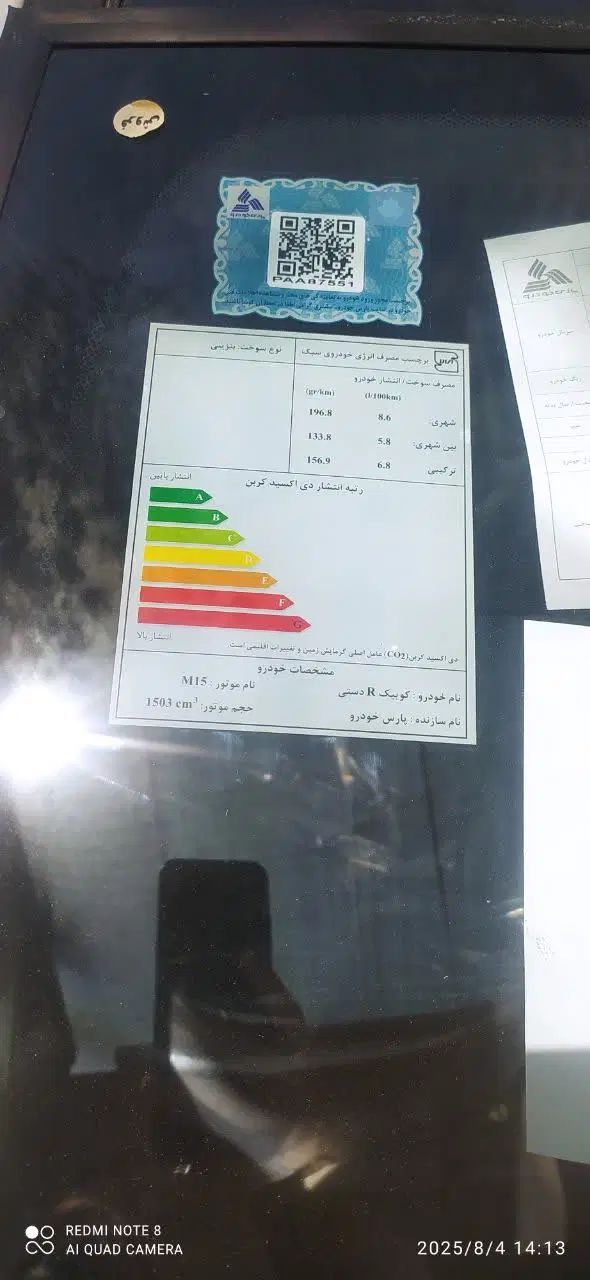 فروش
PAA87551
برچسب مصرف انرژی خودروی سبک
نوع سوخت: بنزینی
مصرف سوخت/ انتشار خودرو
(l/100km) (gr/km)
شهری: 8.6 196.8
بین شهری: 5.8 133.8
ترکیبی 6.8 156.9
رتبه انتشار دی اکسید کربن
انتشار پایین
A
B
C
D
E
F
G
انتشار بالا
دی اکسید کربن(CO2) عامل اصلی گرمایش زمین و تغییرات اقلیمی است.
مشخصات خودرو
نام خودرو : کوییک R دستی
نام موتور : M15
نام سازنده : پارس خودرو
حجم موتور: 1503 cm3
پارس خودرو
رنگ خودرو
REDMI NOTE 8
AI QUAD CAMERA
2025/8/4 14:13